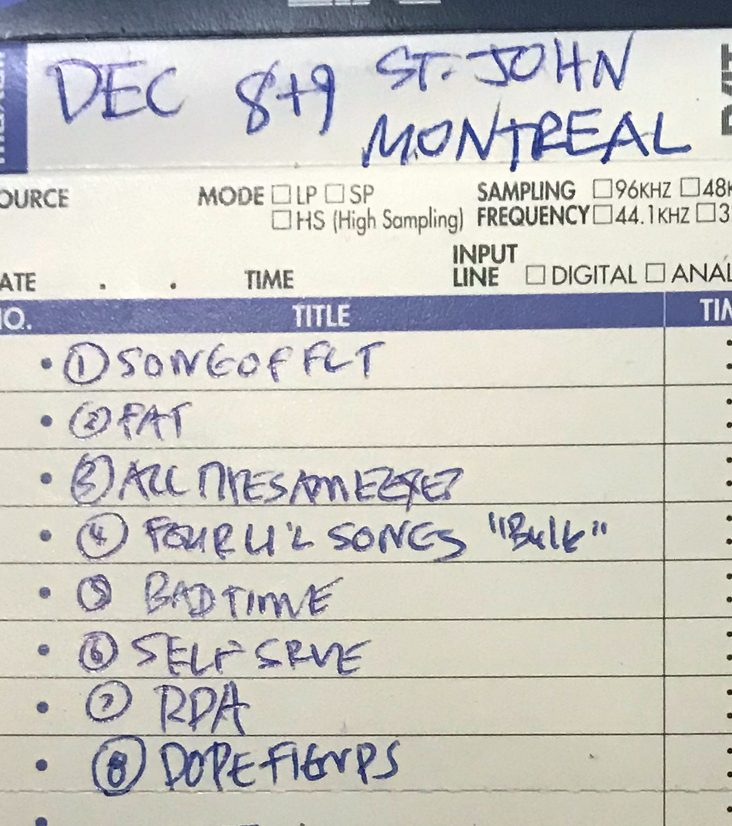 maxell
DEC 8+9 ST. JOHN
MONTREAL
DAT
OURCE MODE □LP □SP SAMPLING □96KHZ □48K
□HS (High Sampling) FREQUENCY □44.1KHZ □3
ATE . . TIME INPUT
LINE □DIGITAL □ANAL
NO. TITLE TIM
• ① SONG OF FLT
• ② FAT
• ③ ALL THE SAME
• ④ FOUR LI'L SONGS "Bulk"
• ⑤ BAD TIME
• ⑥ SELF SRVE
• ⑦ RDA
• ⑧ DOPE FIENDS